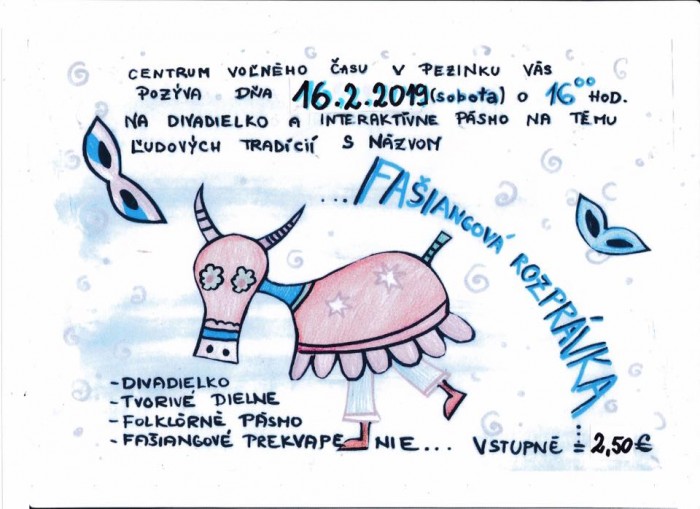 CENTRUM VOĽNÉHO ČASU V PEZINKU VÁS
POZÝVA DŇA 16.2.2019 (sobota) O 16⁰⁰ HOD.
NA DIVADIELKO A INTERAKTÍVNE PÁSMO NA TÉMU
ĽUDOVÝCH TRADÍCIÍ S NÁZVOM
...FAŠIANGOVÁ ROZPRÁVKA...
-DIVADIELKO
-TVORIVÉ DIELNE
-FOLKLÓRNE PÁSMO
-FAŠIANGOVÉ PREKVAPENIE... VSTUPNÉ = 2,50€